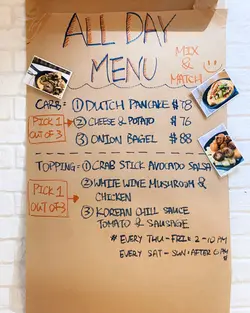 ALL DAY
MENU
MIX
&
MATCH
CARB = ① DUTCH PANCAKE $78
PICK 1
OUT OF 3
② CHEESE & POTATO $76
③ ONION BAGEL $88
TOPPING = ① CRAB STICK AVOCADO SALSA
PICK 1
OUT OF 3
② WHITE WINE MUSHROOM &
CHICKEN
③ KOREAN CHILI SAUCE
TOMATO & SAUSAGE
* EVERY THU - FRI 2-10 PM
EVERY SAT - SUN AFTER 6 PM